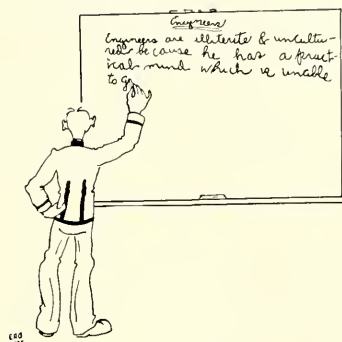 Engyneers
Engyneers are illiterite & uncultu-
red because he has a pract-
ical mind which is unable
to g